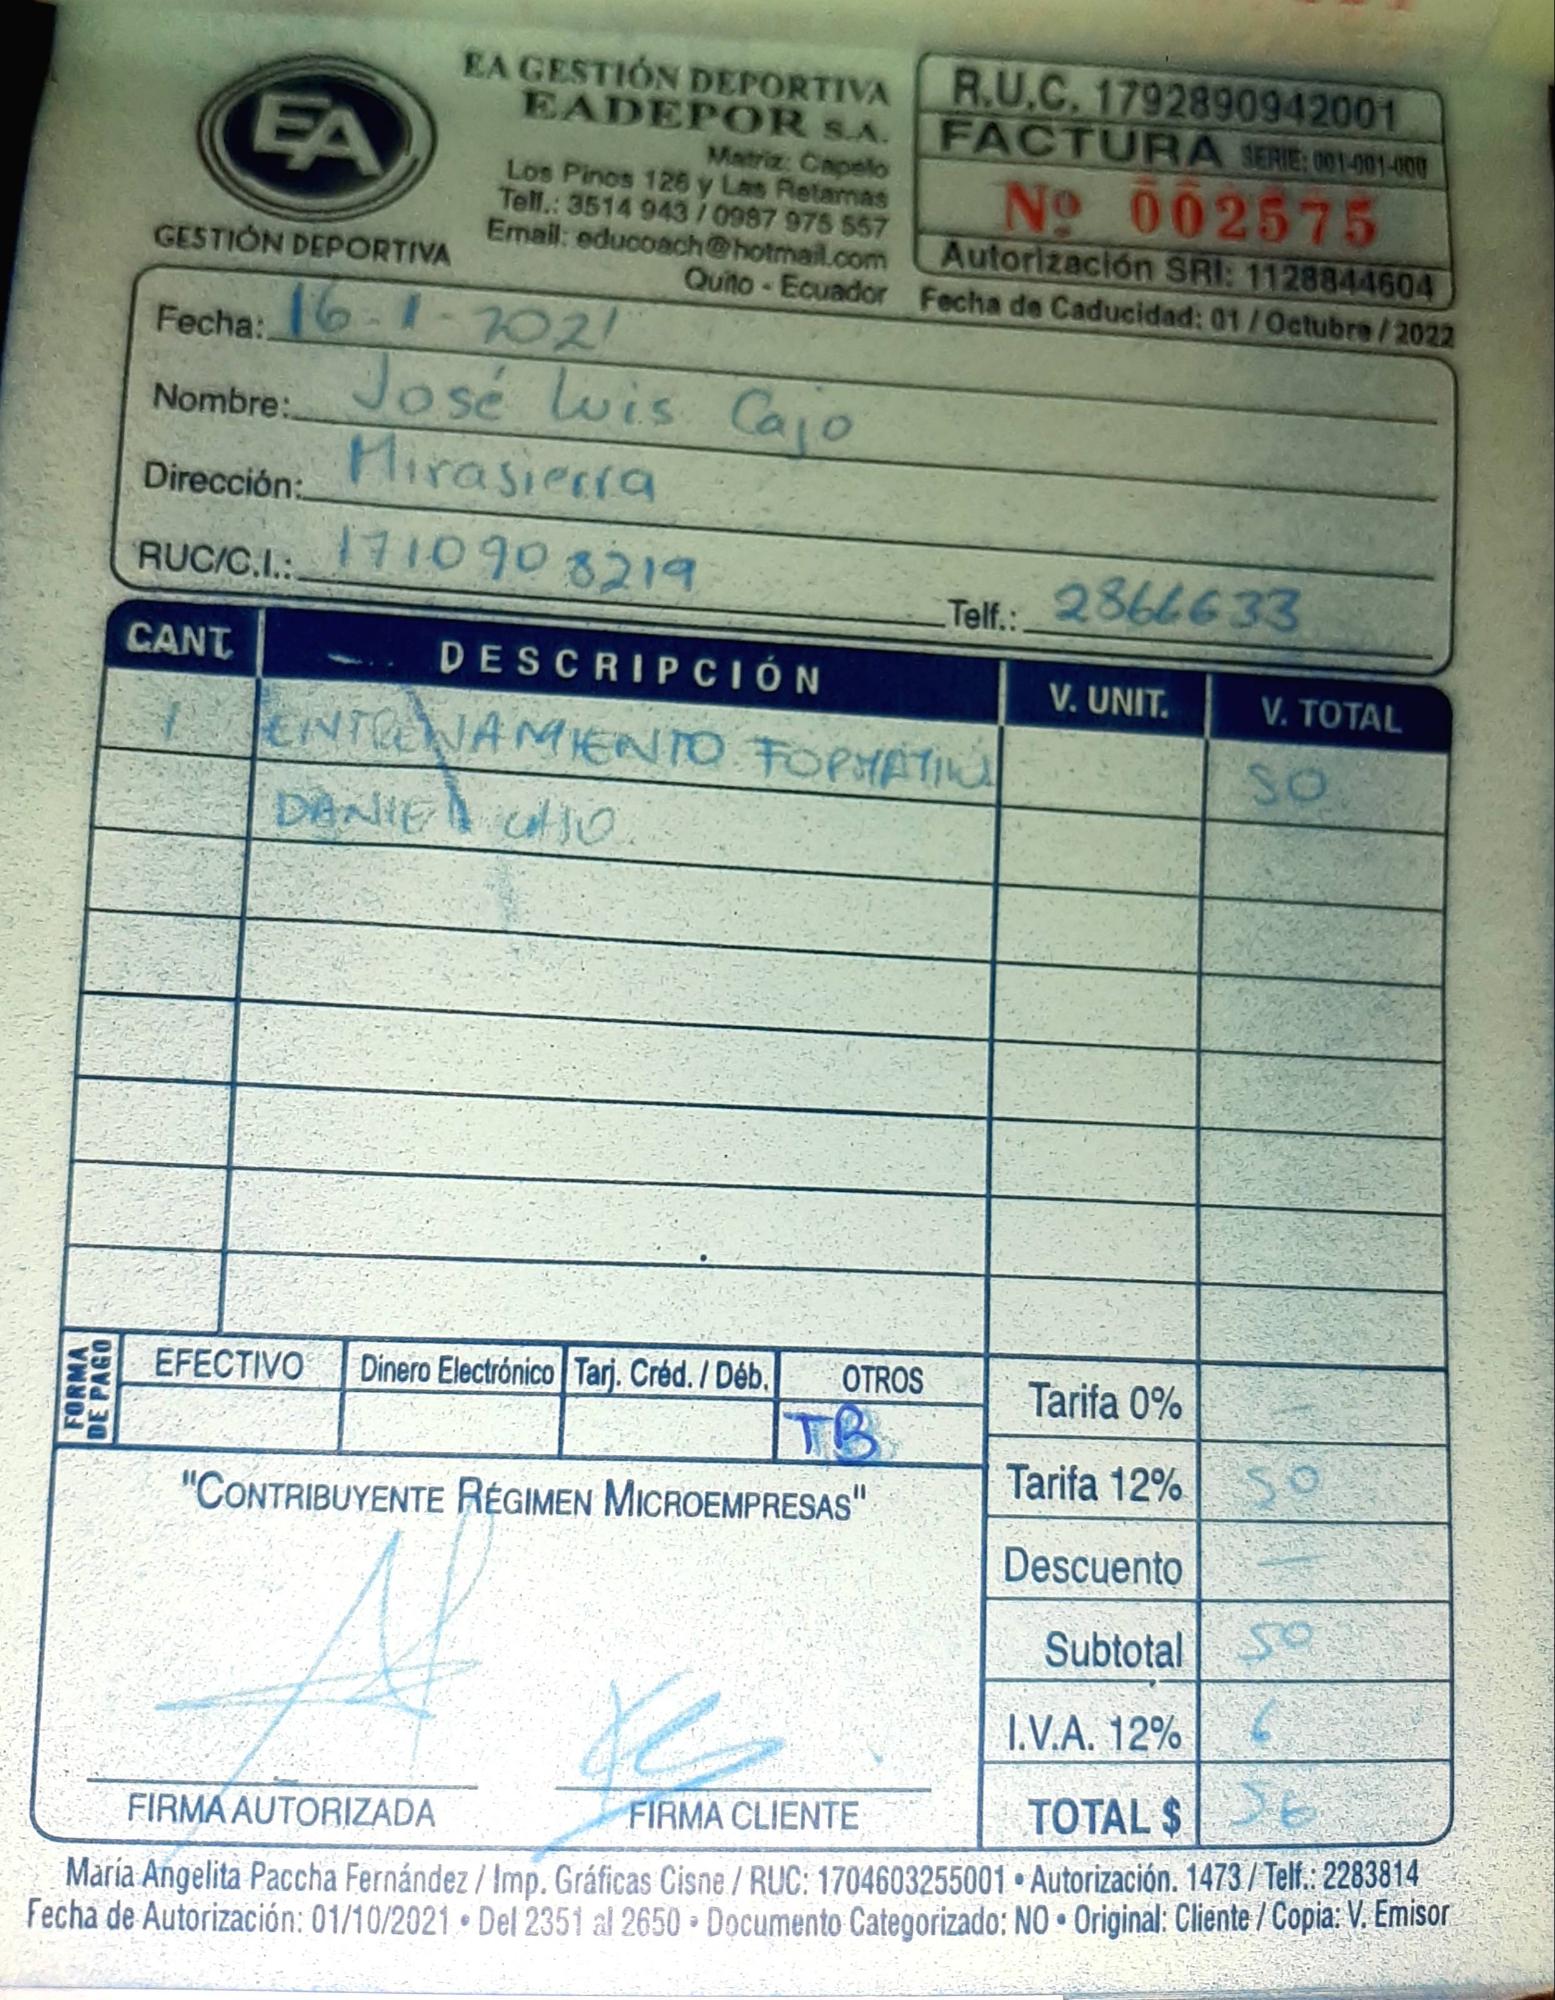 EA
GESTIÓN DEPORTIVA
EA GESTIÓN DEPORTIVA
EADEPOR S.A.
Matriz: Capelo
Los Pinos 126 y Las Retamas
Telf.: 3514 943 / 0987 975 557
Email: educoach@hotmail.com
Quito - Ecuador
R.U.C. 1792890942001
FACTURA SERIE: 001-001-000
Nº 002575
Autorización SRI: 1128844604
Fecha de Caducidad: 01 / Octubre / 2022
Fecha: 16-1-2021
Nombre: José Luis Cajo
Dirección: Mirasierra
RUC/C.I.: 1710908219 Telf.: 2866633
CANT. DESCRIPCIÓN V. UNIT. V. TOTAL
1 ENTRENAMIENTO FORMATIVO 50
DANIEL CAJO
FORMA DE PAGO
EFECTIVO Dinero Electrónico Tarj. Créd. / Déb. OTROS
TB
Tarifa 0% —
Tarifa 12% 50
Descuento —
Subtotal 50
I.V.A. 12% 6
TOTAL $ 56
"CONTRIBUYENTE RÉGIMEN MICROEMPRESAS"
FIRMA AUTORIZADA FIRMA CLIENTE
María Angelita Paccha Fernández / Imp. Gráficas Cisne / RUC: 1704603255001 • Autorización. 1473 / Telf.: 2283814
Fecha de Autorización: 01/10/2021 • Del 2351 al 2650 • Documento Categorizado: NO • Original: Cliente / Copia: V. Emisor